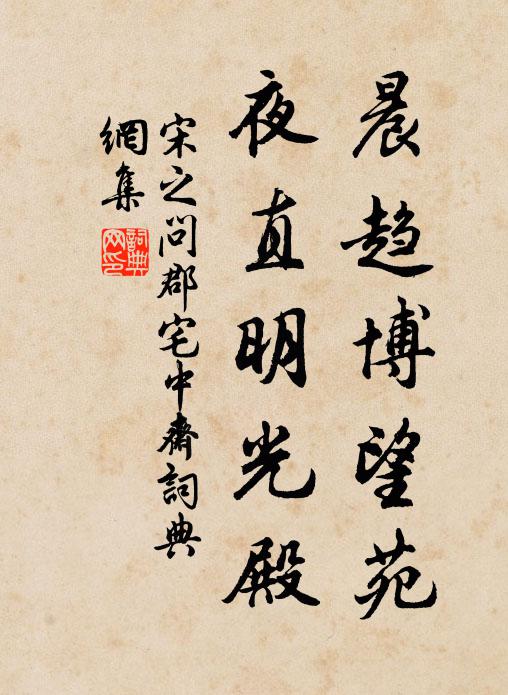 晨趋博望苑
夜直明光殿
宋之问郡宅中斋詞典
網集
詞典网印